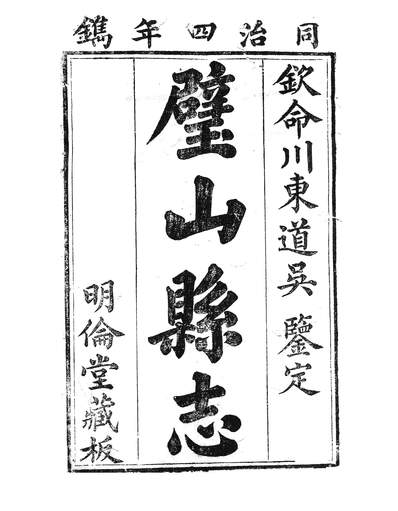 同治四年鐫
欽命川東道吳鑒定
璧山縣志
明倫堂藏板